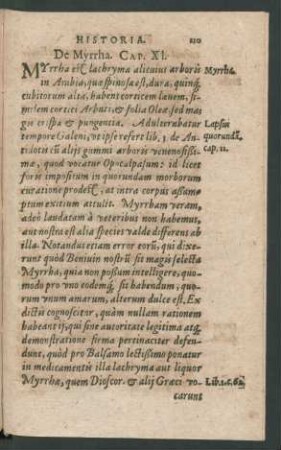 HISTORIA. 120
De Myrrha. CAP. XI.
MYrrha est lachryma alicuius arboris Myrrha.
in Arabia, quæ spinosa est, dura, quinq́;
cubitorum alta, habent corticem lauem, si-
milem cortici Arbuti: & folia Oleæ, sed ma-
gis crispa & pungentia. Adulterabatur Lapsus
tempore Galeni, vt ipse refert lib. 1. de An- quorundã.
tidotis cũ alijs gummi arboris venenosissi- cap. 11.
ma, quod vocatur Op-calpasum: id licet
foris impositum in quorundam morborum
curatione prodest, at intra corpus assum-
ptum exitium attulit. Myrrham veram,
adeò laudatam à veteribus non habemus,
aut nostra est alia species valde differens ab
illa. Notandus etiam error eorũ, qui dixe-
runt quòd Beniuin nostrũ sit magis selecta
Myrrha, quia non possum intelligere, quo-
modo pro vno eodemq́; sit habendum, quo-
rum vnum amarum, alterum dulce est. Ex
dictis cognoscitur, quàm nullam rationem
habeant ij, qui sine autoritate legitima atq́;
demonstratione firma pertinaciter defen-
dunt, quòd pro Balsamo lectissimo ponatur
in medicamentis illa lachryma aut liquor
Myrrhæ, quem Dioscor. & alij Græci vo- Lib.1.c.62.
carunt